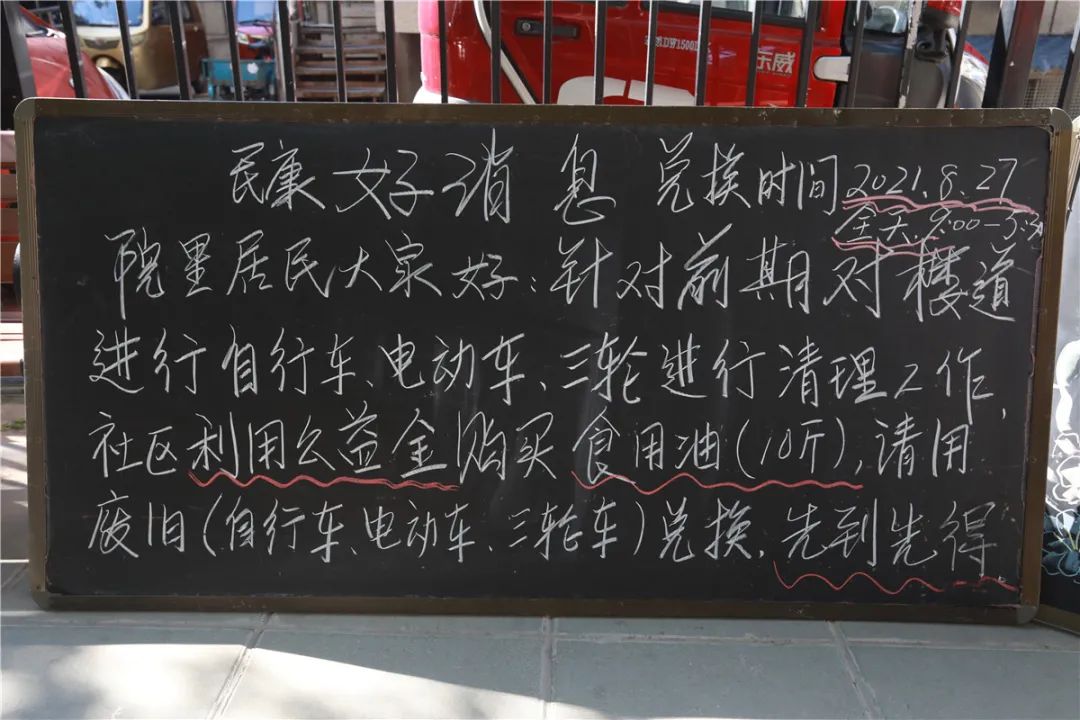 DW1500D
东威
民康好消息 兑换时间 2021.8.27
全天 9:00-5:30
院里居民大家好:针对前期对楼道
进行自行车、电动车、三轮进行清理工作,
社区利用公益金购买食用油(10斤),请用
废旧(自行车、电动车、三轮车)兑换,先到先得.